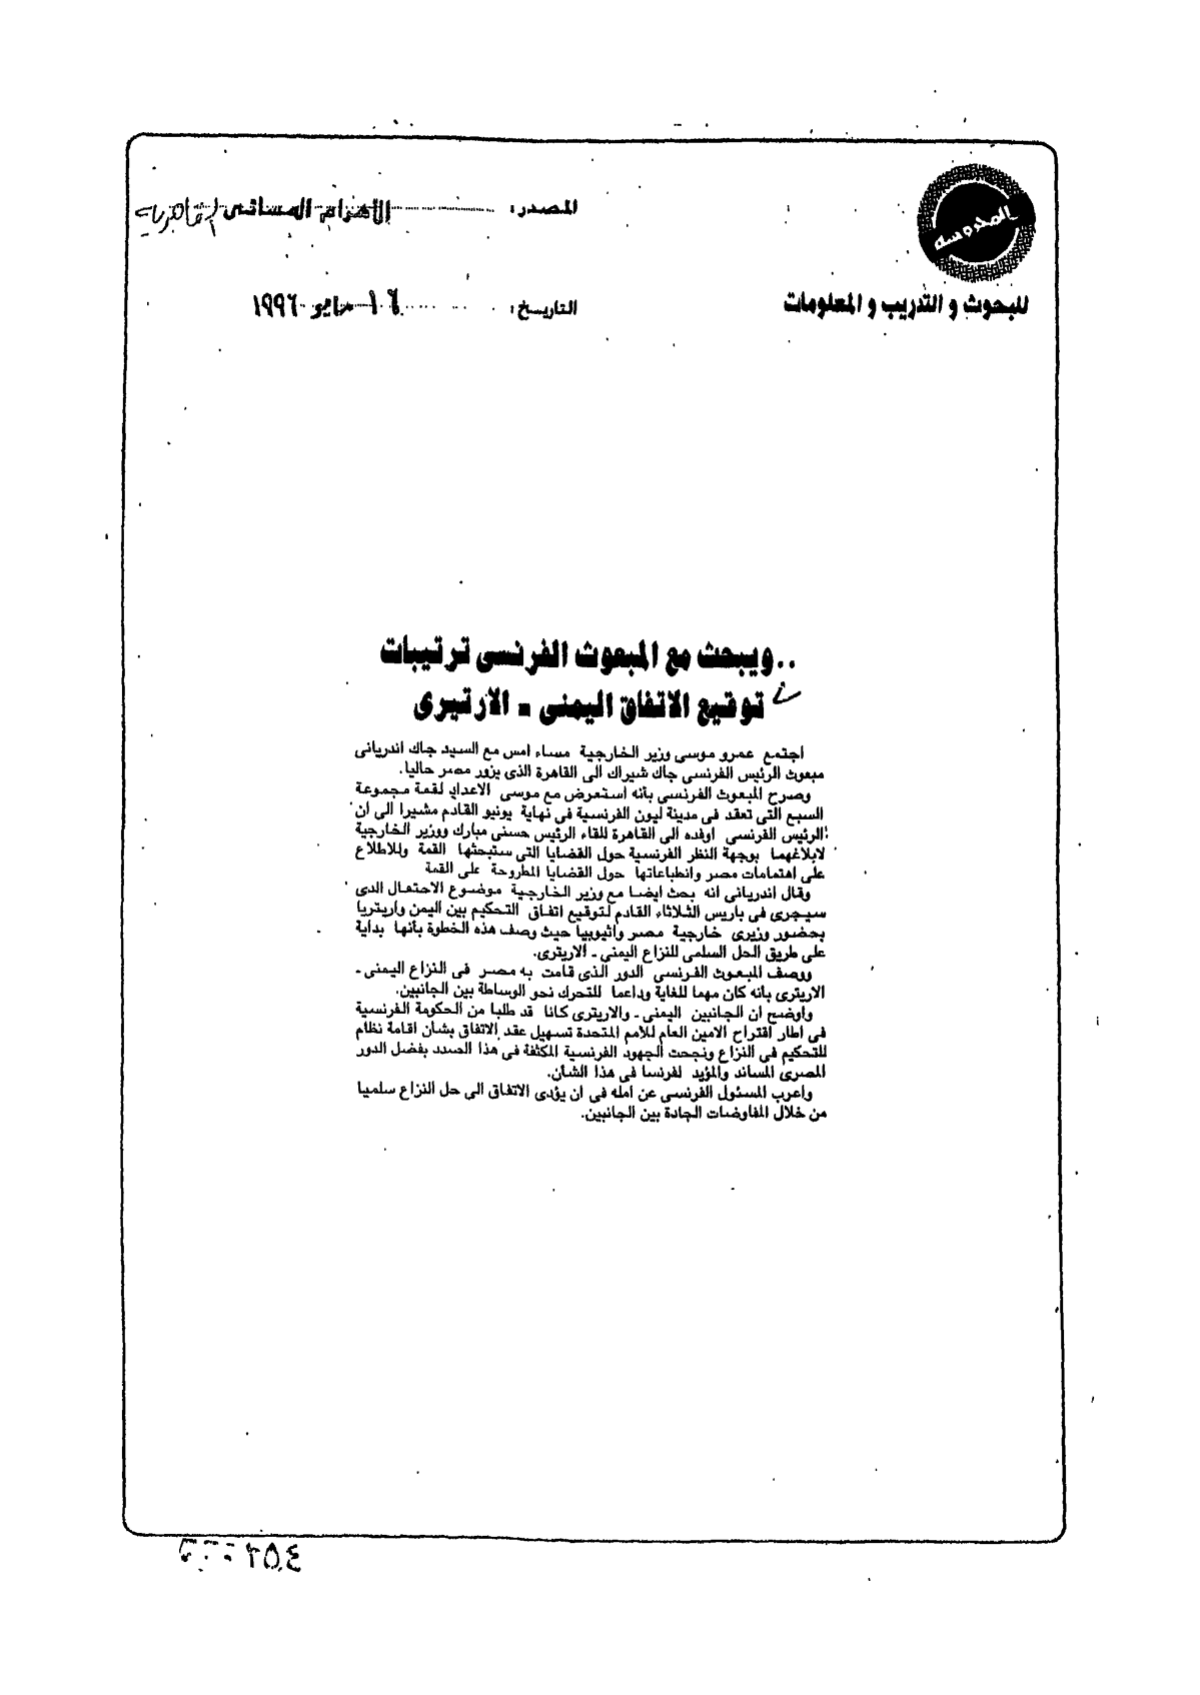 المحروسة
للبحوث و التدريب و المعلومات
المصدر: الأهرام المسائى القاهرية
التاريخ: ١٦ مايو ١٩٩٦
..ويبحث مع المبعوث الفرنسى ترتيبات
توقيع الاتفاق اليمنى - الارتيرى
اجتمع عمرو موسى وزير الخارجية مساء امس مع السيد جاك اندريانى
مبعوث الرئيس الفرنسى جاك شيراك الى القاهرة الذى يزور مصر حاليا.
وصرح المبعوث الفرنسى بأنه استعرض مع موسى الاعداد لقمة مجموعة
السبع التى تعقد فى مدينة ليون الفرنسية فى نهاية يونيو القادم مشيرا الى ان
الرئيس الفرنسى اوفده الى القاهرة للقاء الرئيس حسنى مبارك ووزير الخارجية
لابلاغهما بوجهة النظر الفرنسية حول القضايا التى ستبحثها القمة وللاطلاع
على اهتمامات مصر وانطباعاتها حول القضايا المطروحة على القمة
وقال اندريانى انه بحث ايضا مع وزير الخارجية موضوع الاحتفال الذى
سيجرى فى باريس الثلاثاء القادم لتوقيع اتفاق التحكيم بين اليمن واريتريا
بحضور وزيرى خارجية مصر واثيوبيا حيث وصف هذه الخطوة بأنها بداية
على طريق الحل السلمى للنزاع اليمنى - الاريترى.
ووصف المبعوث الفرنسى الدور الذى قامت به مصر فى النزاع اليمنى -
الاريترى بانه كان مهما للغاية وداعما للتحرك نحو الوساطة بين الجانبين.
واوضح ان الجانبين اليمنى - والاريترى كانا قد طلبا من الحكومة الفرنسية
فى اطار اقتراح الامين العام للأمم المتحدة تسهيل عقد الاتفاق بشان اقامة نظام
للتحكيم فى النزاع ونجحت الجهود الفرنسية المكثفة فى هذا الصدد بفضل الدور
المصرى المساند والمؤيد لفرنسا فى هذا الشان.
وأعرب المسئول الفرنسى عن امله فى ان يؤدى الاتفاق الى حل النزاع سلميا
من خلال المفاوضات الجادة بين الجانبين.